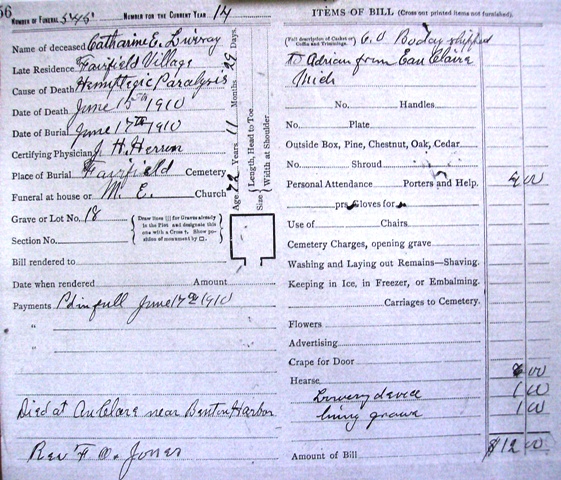 56
NUMBER OF FUNERAL 545 NUMBER FOR THE CURRENT YEAR 14
Name of deceased Catharine E.
Late Residence Fairfield Village
Cause of Death Hemiplegic Paralysis
Date of Death June 15th 1910
Date of Burial June 17th 1910
Certifying Physician J. H. Herrin
Place of Burial Fairfield Cemetery
Funeral at house or M. E. Church
Grave or Lot No. 18
Section No.
Draw lines ||| for Graves already in the Plot and designate this one with a Cross †. Show position of monument by □.
Bill rendered to
Date when rendered Amount
Payments Pd in full June 17th 1910
"
"
Died at Au Clare near Benton Harbor
Rev F O. Jones
Age 72 Years 11 Months 29 Days.
Size Length, Head to Toe
Width at Shoulder
ITEMS OF BILL (Cross out printed items not furnished).
(Full description of Casket or Coffin and Trimmings. Boday shipped
to Adrian from Eau Claire
Mich
No. Handles
No. Plate
Outside Box, Pine, Chestnut, Oak, Cedar
No. Shroud
Personal Attendance Porters and Help. 4 00
prs Gloves for
Use of Chairs
Cemetery Charges, opening grave
Washing and Laying out Remains—Shaving.
Keeping in Ice, in Freezer, or Embalming.
Carriages to Cemetery.
Flowers
Advertising
Crape for Door
Hearse 6 00
Lowery device 1 00
lining grave 1 00
Amount of Bill $12 00